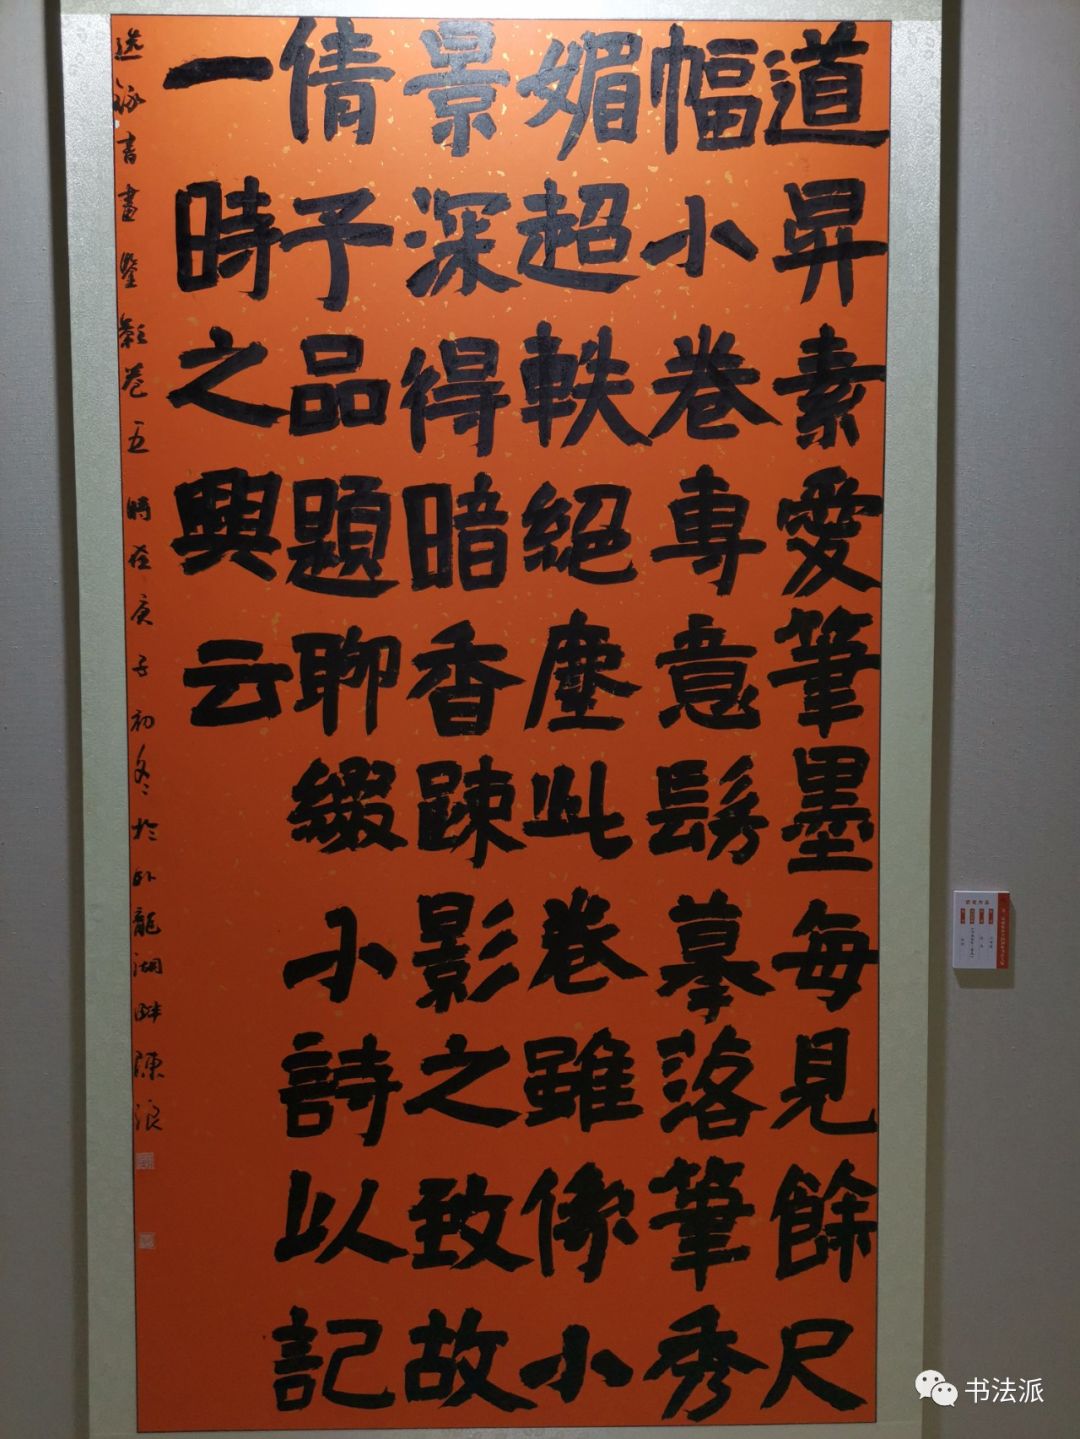 道昇素愛筆墨每見餘尺
幅小卷專意髣摹落筆秀
媚超軼絕塵此卷雖係小
景深得暗香踈影之致故
倩子品題聊綴小詩以記
一時之興云
選錄書畫鑒影卷五時在庚子初冬於卧龍湖畔陳浪
书法派